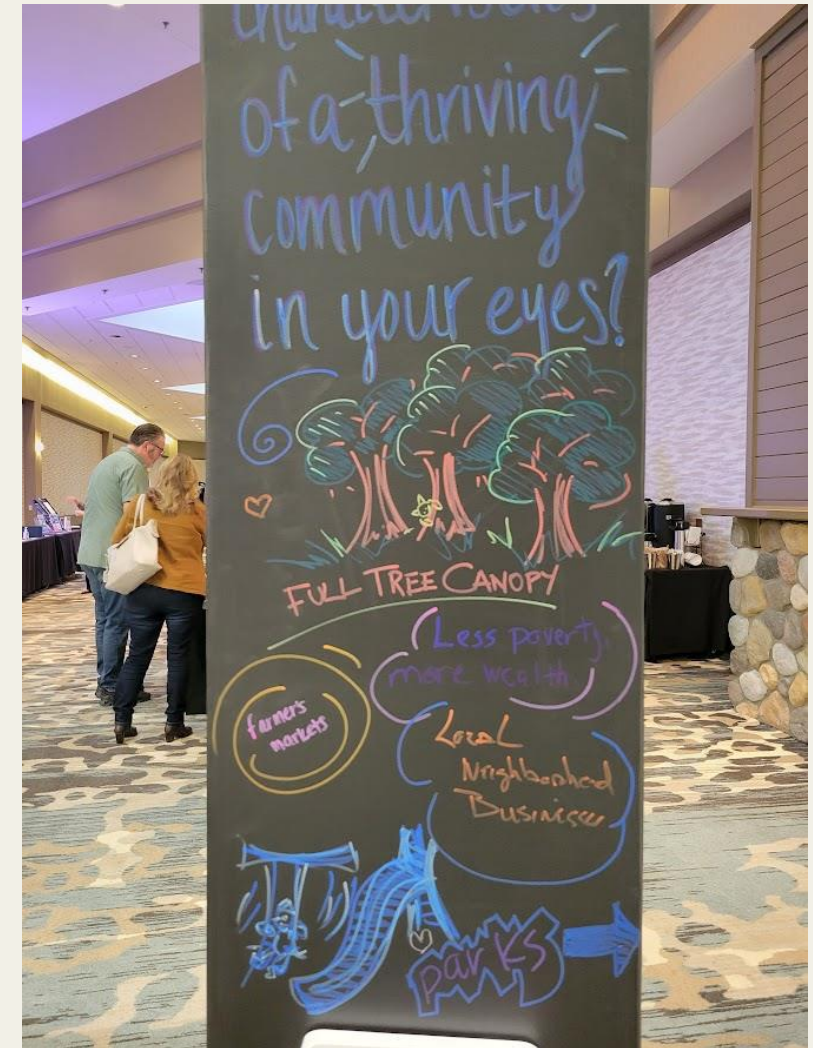 characteristics
of a thriving
community
in your eyes?
FULL TREE CANOPY
Less poverty,
more wealth
farmer's
markets
Local
Neighborhood
Businesses
parks